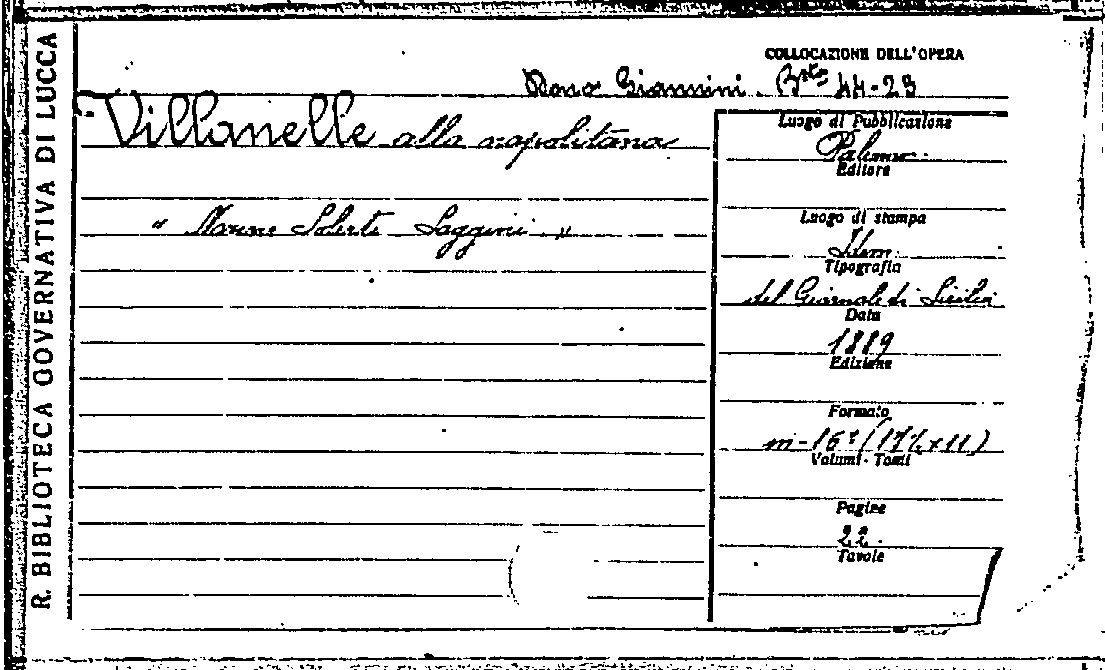 R. BIBLIOTECA GOVERNATIVA DI LUCCA
COLLOCAZIONE DELL'OPERA
Dono Giannini. Bta 44-23
Villanelle alla napolitana
« Solerti Saggini »
Luogo di Pubblicazione
Palermo
Editore
Luogo di stampa
Idem
Tipografia
del Giornale di Sicilia
Data
1889
Edizione
Formato
in-16° (17½ x 11)
Volumi - Tomi
Pagine
22.
Tavole